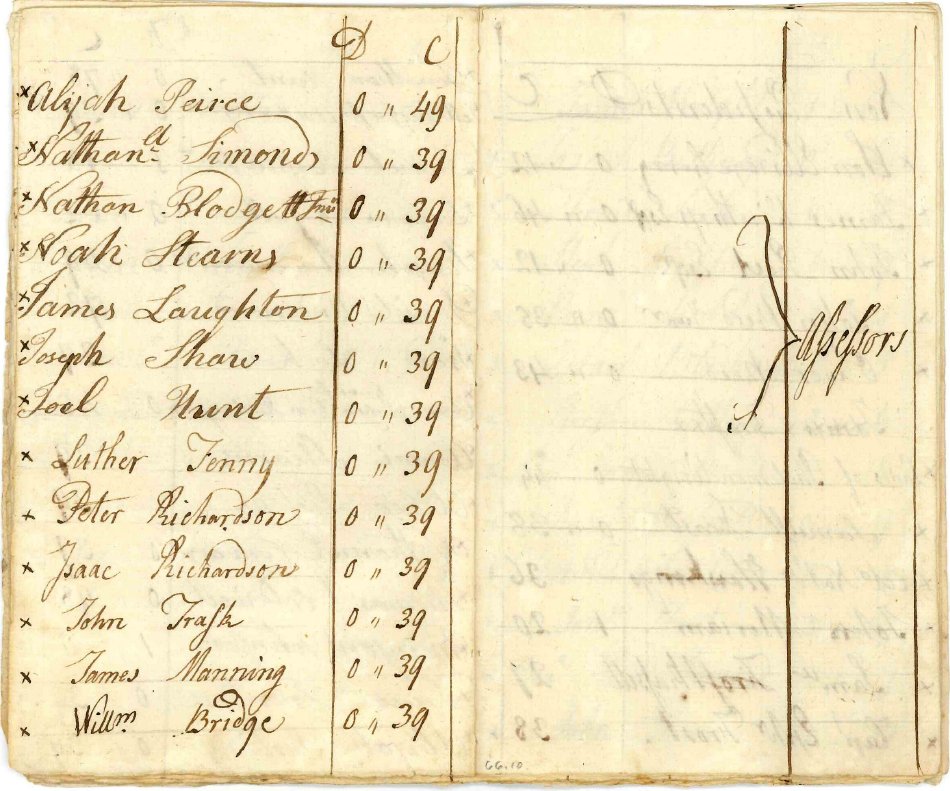 D C
×Alijah Peirce 0 " 49
×Nathan.el Simonds 0 " 39
×Nathan Blodgett Junr 0 " 39
×Noah Stearns 0 " 39
×James Laughton 0 " 39
×Joseph Shaw 0 " 39
×Joel Hunt 0 " 39
× Luther Fenny 0 " 39
× Peter Richardson 0 " 39
× Isaac Richardson 0 " 39
× John Trask 0 " 39
× James Manning 0 " 39
× Willm. Bridge 0 " 39
Aſseſsors
GG.10